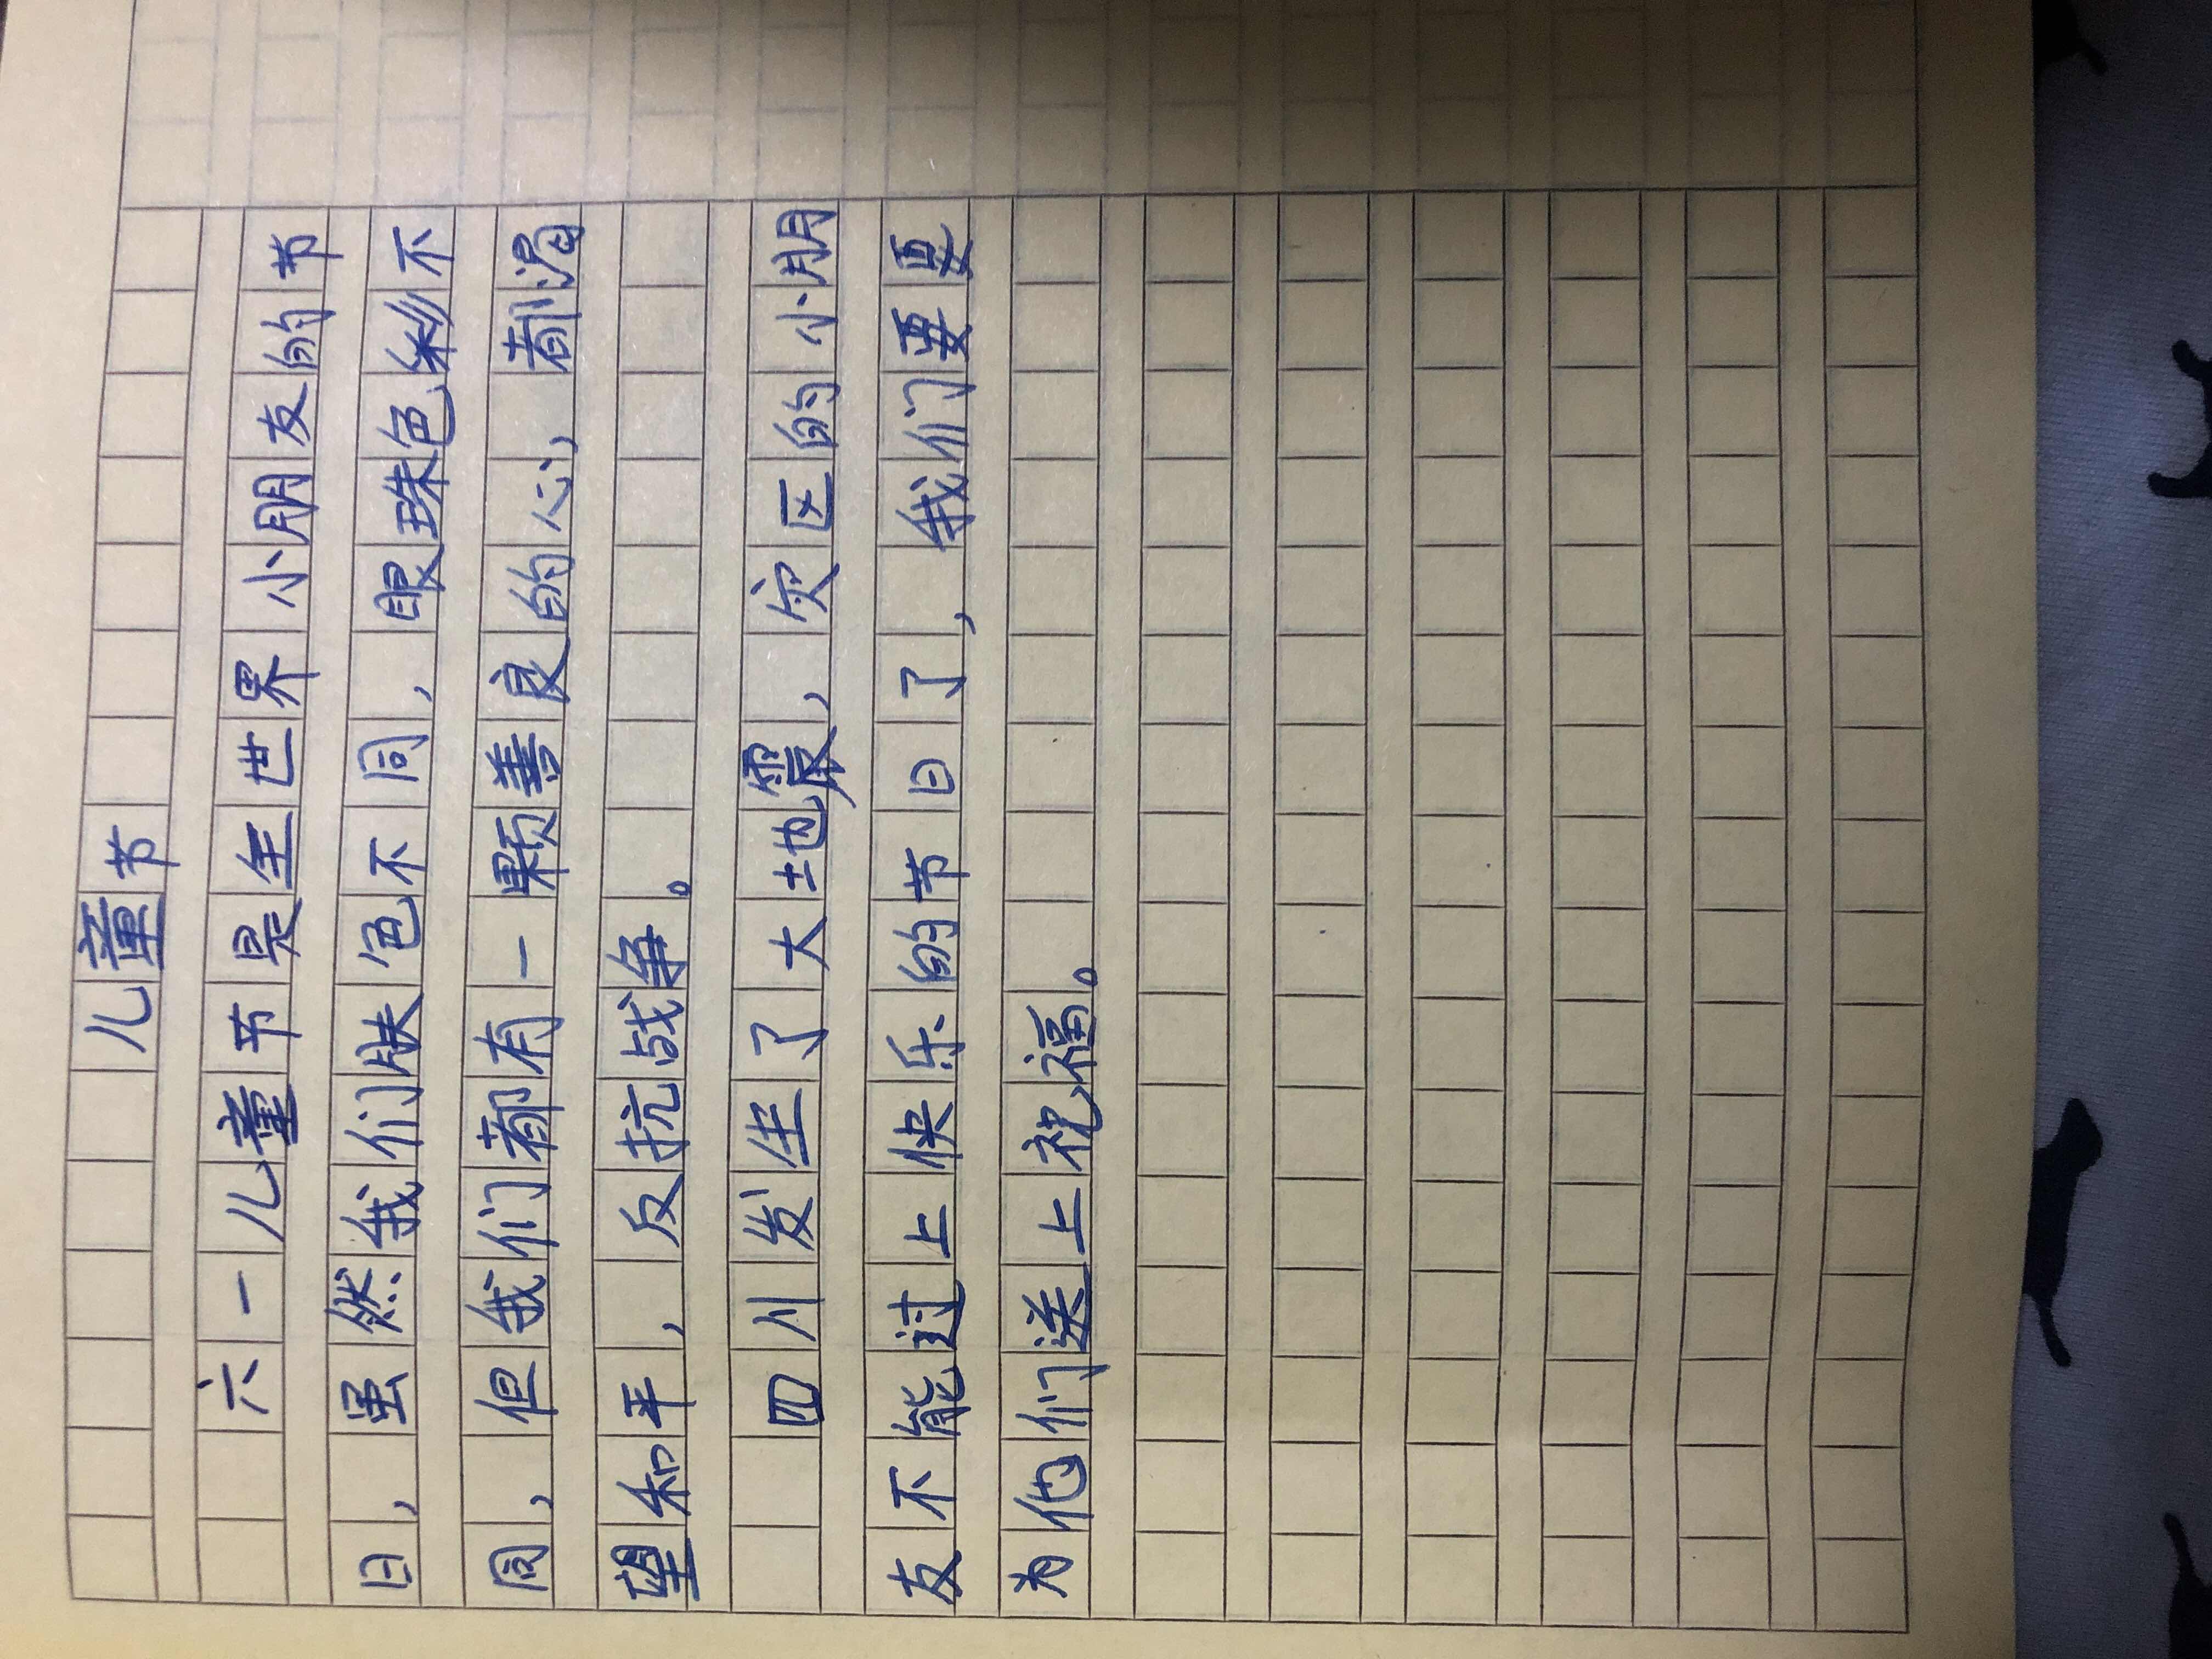 儿童节
六一儿童节是全世界小朋友的节
日，虽然我们肤色不同，眼珠色彩不
同，但我们都有一颗善良的心，都渴
望和平，反抗战争。
四川发生了大地震，灾区的小朋
友不能过上快乐的节日了，我们要要
为他们送上祝福。